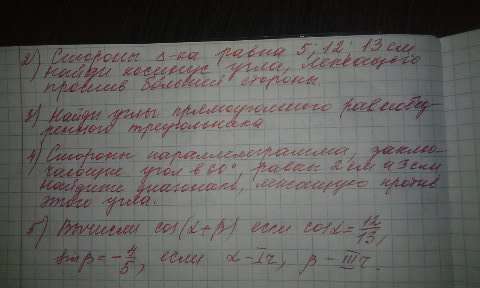 2) Стороны Δ-ка равна 5; 12; 13 см
найди косинус угла, лежащего
против большей стороны.
3) Найди углы прямоугольного равнобед-
ренного треугольника
4) Стороны параллелограмма, заклю-
чающие угол в 60°, равны 2 см и 3 см
найдите диагональ, лежащую против
этого угла.
5) Вычисли cos(α+β) если cosα=12/13,
sinβ=-4/5, если α-Iч, β-IIIч.